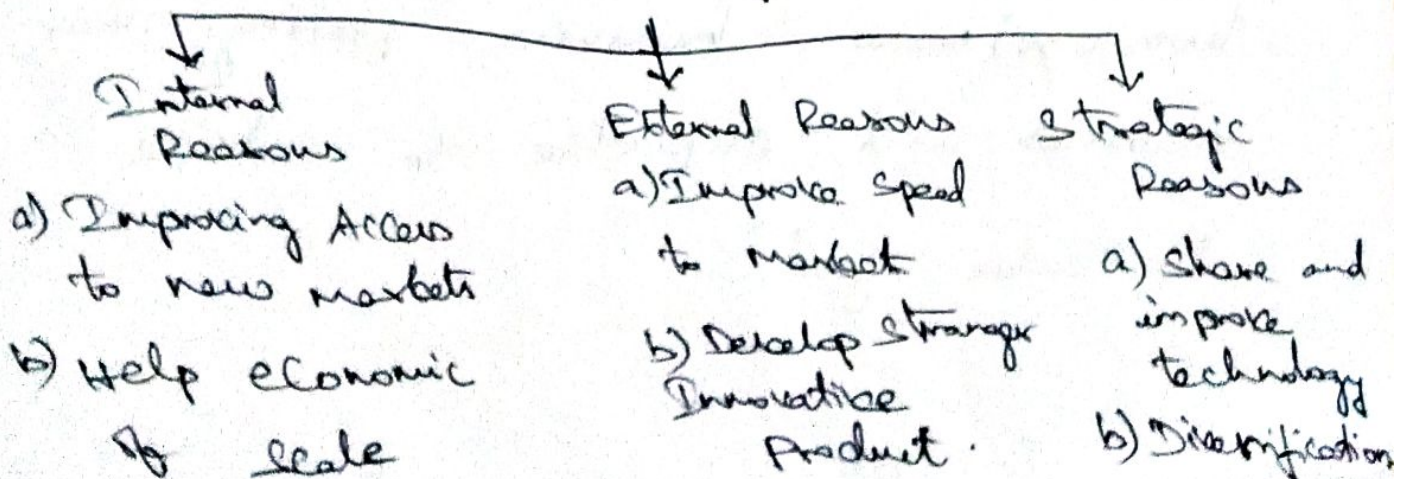 Internal
Reasons
a) Improving Access
to new markets
b) Help economic
of scale
External Reasons
a) Improve speed
to market
b) Develop stronger
Innovative
Product.
Strategic
Reasons
a) Share and
improve
technology
b) Diversification